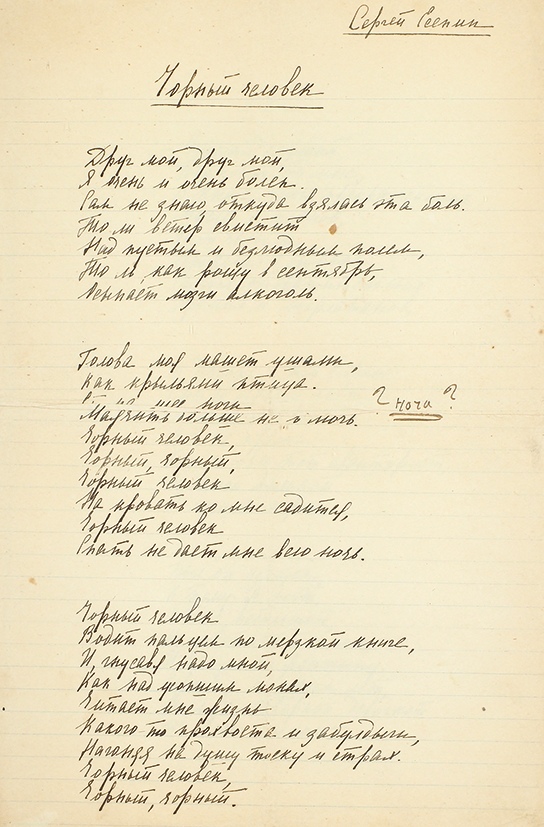 Сергей Есенин
Чорный человек
Друг мой, друг мой,
Я очень и очень болен.
Сам не знаю, откуда взялась эта боль.
То ли ветер свистит
Над пустым и безлюдным полем,
То ль, как рощу в сентябрь,
Осыпает мозги алкоголь.
Голова моя машет ушами,
Как крыльями птица.
ноги
Маячить больше не в мочь.
? ночи ?
Чорный человек,
Чорный, чорный,
Чорный человек
На кровать ко мне садится,
Чорный человек
Спать не дает мне всю ночь.
Чорный человек
Водит пальцем по мерзкой книге,
И, гнусавя надо мной,
Как над усопшим монах,
Читает мне жизнь
Какого то прохвоста и забулдыги,
Нагоняя на душу тоску и страх.
Чорный человек,
Чорный, чорный.